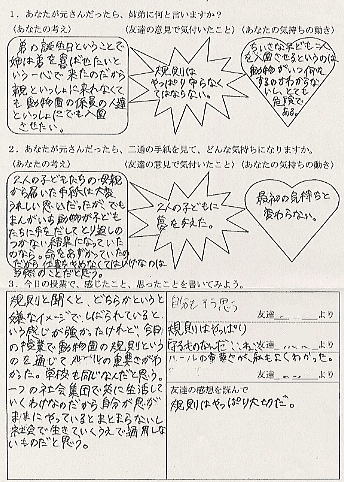 1．あなたが元さんだったら、姉弟に何と言いますか？
（あなたの考え）
（友達の意見で気付いたこと）
（あなたの気持ちの動き）
弟の誕生日ということで
姉は弟を喜ばせたいと
いう一心で来たのだから
親といっしょに来れなくて
も動物園で係員の人達
といっしょにでも入園
させたい。
規則は
やっぱり守らなく
てはならない。
ちいさな子ども二人
を入園させるというのは、
動物がいつ何を
するのかがわからな
いし、とても
危険で
ある。
2．あなたが元さんだったら、二通の手紙を見て、どんな気持ちになりますか。
（あなたの考え）
（友達の意見で気付いたこと）
（あなたの気持ちの動き）
2人の子どもたちの母親
から届いた手紙は大変
うれしい思いだったが、でも
まんがいち動物が子ども
たちに手をだしてとり返しの
つかない結果になっていた
のなら。命をあずかっていた
のだから仕事をやめなくてはいけなくなるのは
当然のことだと思う。
2人の子どもに
夢を与えた。
最初の気持ちと
変わらない。
3．今日の授業で、感じたこと、思ったことを書いてみよう。
規則と聞くと、どちらかというと
嫌なイメージで、しばられている
という感じが強かったけれど、今日
の授業で動物園の規則というも
のを通じてルールの重要さがわ
かった。学校も同じなんだと思う。
一つの社会集団で共に生活して
いくわけなのだから自分が思うが
ままにやっているとまとまらないし
社会で生きていくうえで通用しな
いものだと思う。
自分もそう思う
友達
より
規則はやっぱり
友達
より
ルールの重要さが、私もよくわかった。
友達
より
友達の感想を読んで
規則はやっぱり大切だ。